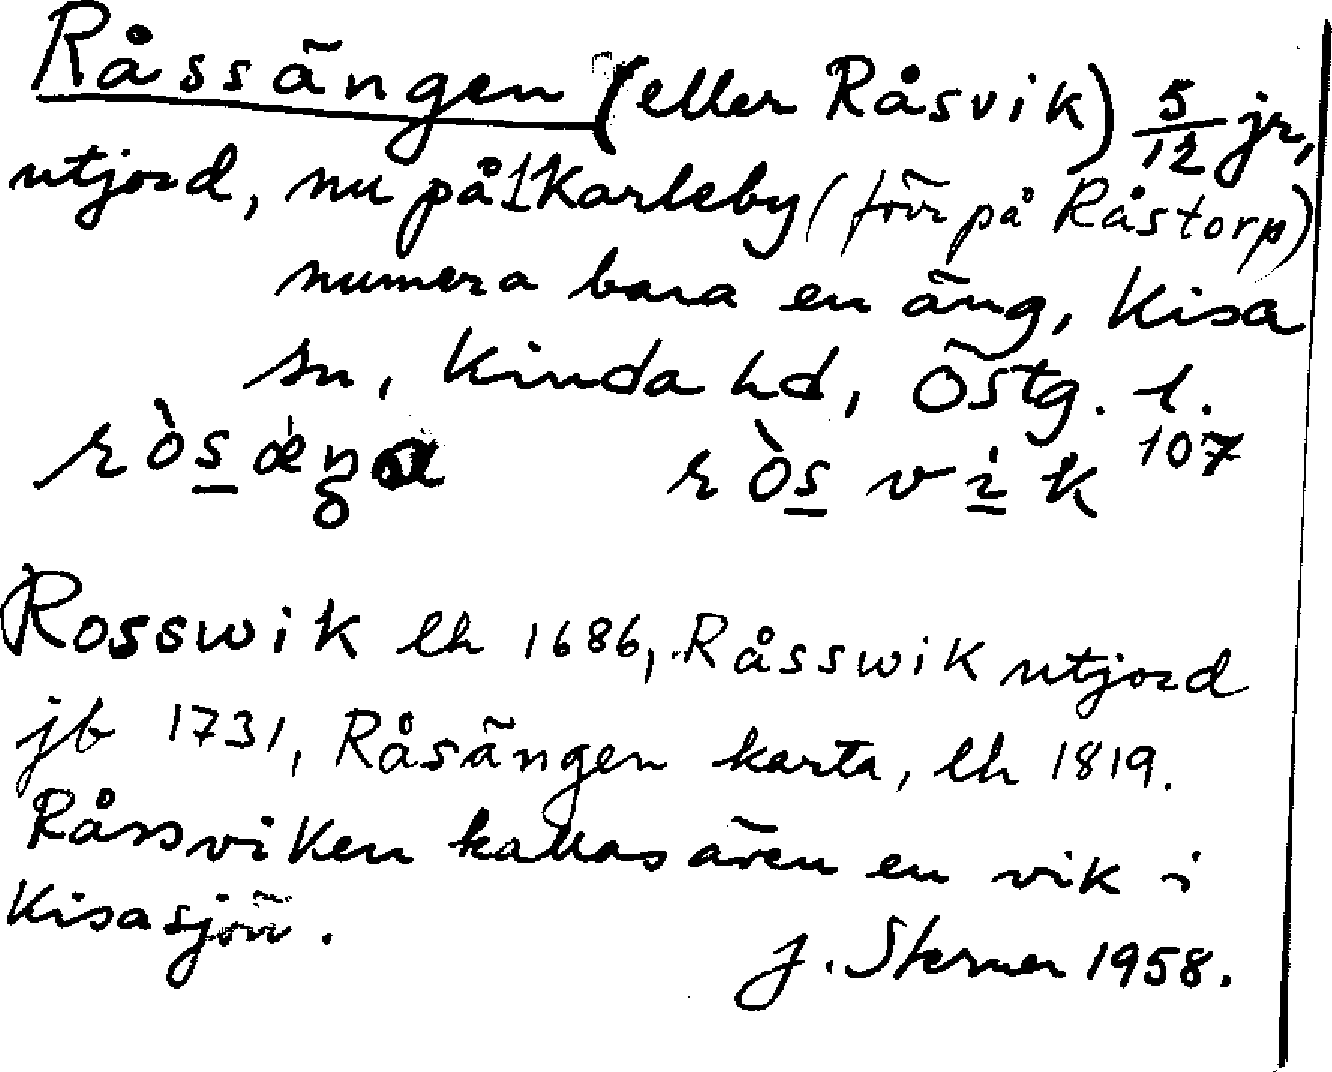 Råssängen (eller Råsvik) 5/12 jr,
utjord, nu på 1 Karleby (förr på Råstorp)
numera bara en äng, Kisa
sn, Kinda hd, Östg. l.
ròsæŋa ròsvik 107
Rosswik lh 1686, Råsswik utjord
jb 1731, Råsängen karta, lh 1819.
Råssviken kallas även en vik i
Kisasjön.
J. Sterner 1958.